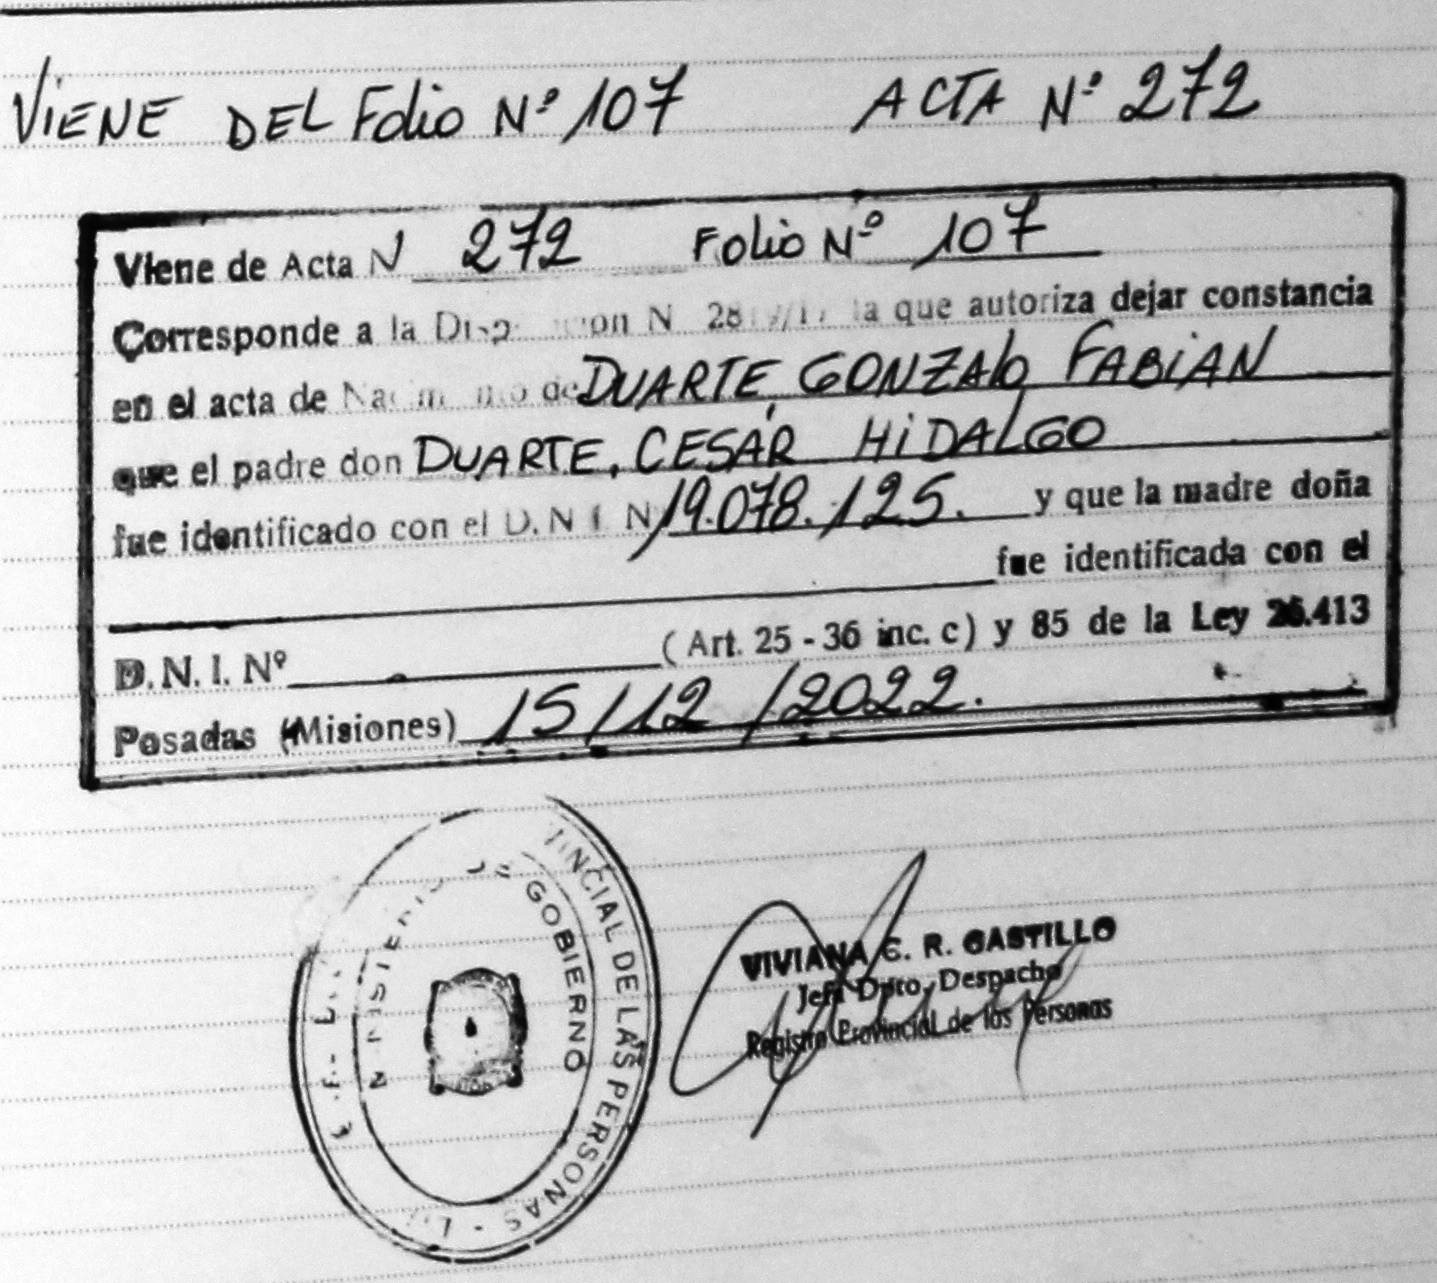 VIENE DEL Folio Nº 107 ACTA Nº 272
Viene de Acta N 272 Folio Nº 107
Corresponde a la N 28 la que autoriza dejar constancia
en el acta de de DUARTE, GONZALO FABIAN
que el padre don DUARTE, CESAR HIDALGO
fue identificado con el D.N.I. N 19.078.125. y que la madre doña
fue identificada con el
D.N.I. Nº (Art. 25 - 36 inc. c) y 85 de la Ley 26.413
Posadas (Misiones) 15/12/2022.
DE LAS PERSONAS
GOBIERNO
VIVIANA C. R. CASTILLO
Jefa Dpto. Despacho
Registro Provincial de las Personas